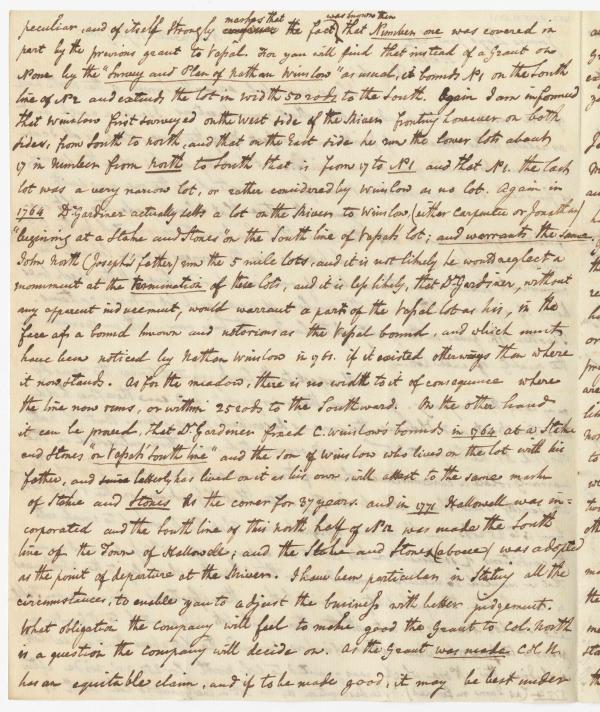 marks that was known then
peculiar, and of itself strongly the fact, that Number one was covered in
part by the previous grant to Vaſsal. For you will find that instead of a Grant on
None by the "Survey and Plan of Nathan Winslow" as usual, it bounds No 1 on the South
line of No 2 and extends the lot in width 50 rods to the South. Again I am informed
that Winslow first surveyed on the West side of the River fronting however on both
sides, from South to north, and that on the East side he run the lower lots about
17 in Number from north to South that is from 17 to No 1 and that No 1. the last
lot was a very narrow lot, or rather considered by Winslow as no lot. Again in
1764 Dr Gardiner actually sells a lot on the River to Winslow (either Carpenter or Jonathan)
"begining at a Stake and Stones" on the South line of Vaſsals lot; and warrants the same.
John North (Joseph's father) run the 5 mile lots, and it is not likely he would neglect a
monument at the termination of these lots, and it is leſs likely, that Dr Gardiner, without
any apparent inducement, would warrant a part of the Vaſsal lot as his, in the
face of a bound known and notorious as the Vaſsal bound, and which must
have been noticed by Nathan Winslow in 1761. if it existed otherways than where
it now stands. As for the meadow, there is no width to it of consequence where
the line now runs, or within 25 rods to the Southward. On the other hand
it can be proved, that Dr Gardiner fixed C. Winslow's bounds in 1764 at a Stake
and Stones "on Vaſsals South line" and the son of Winslow who lived on the lot with his
father, and latterly has lived on it as his own, will attest to the same mark
of Stake and Stones As the corner for 37 years. and in 1771 Hallowell was in-
corporated and the South line of this north half of No 2 was made the South
line of the Town of Hallowell; and the Stake and Stones (above) was adopted
as the point of departure at the River. I have been particular in stating all the
circumstances, to enable you to adjust the businſs with better judgement.
What obligation the Company will feel to make good the Grant to Col. North
is a question the Company will decide on. As the Grant was made Col. N.
has an equitable claim, and if to be made good, it may be best under